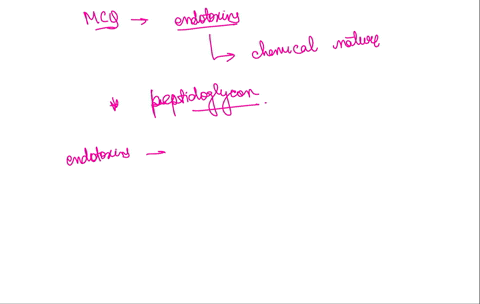 MCQ → endotoxins
↳ chemical nature
* peptidoglycan.
endotoxins —